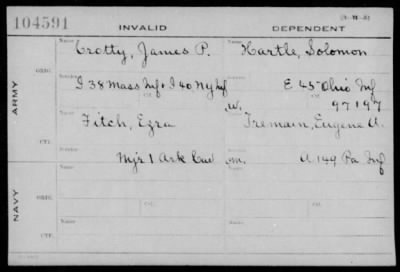 104591
INVALID
DEPENDENT
Name
Crotty, James P.
Name
Hartle, Solomon
ORIG.
Service
I 38 Mass Inf + I 40 N.Y. Inf
E 45 Ohio Inf
W.
97197
ARMY
Name
Fitch, Ezra
Name
Tremain, Eugene A.
CTF.
Mjr 1 Ark Cav
m.
A 149 Pa Inf
Name
Name
NAVY
ORIG.
Ctf.
Ctf.
Name
Name
CTF.